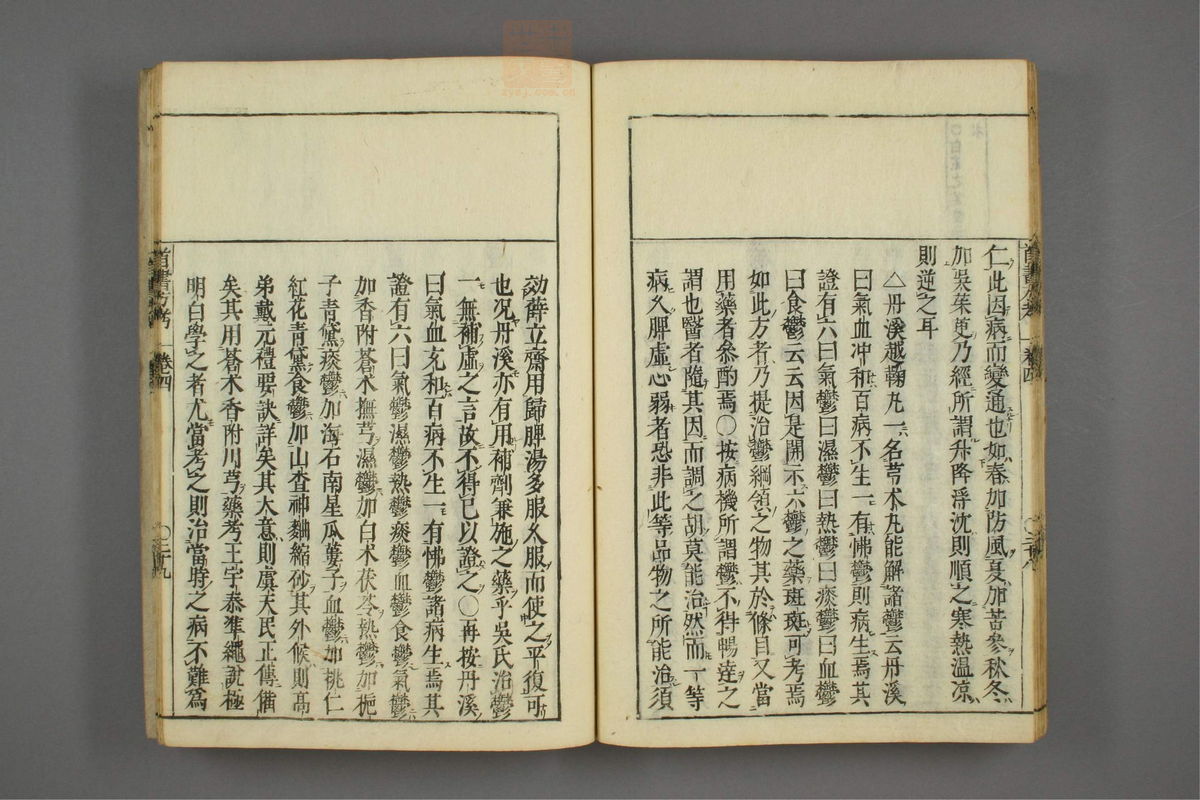 仁此因病而變通也如春加防風夏加苦參秋冬
加吳茱萸乃經所謂升降浮沈則順之寒熱溫凉
則逆之耳
△丹溪越鞠丸一名芎朮丸能解諸鬱云丹溪
曰氣血冲和百病不生一有怫鬱則病生焉其
證有六曰氣鬱曰濕鬱曰熱鬱曰痰鬱曰血鬱
曰食鬱云云因是開示六鬱之藥班班可考焉
如此方者乃提治鬱綱領之物其於條目又當
用藥者參酌焉〇按病機所謂鬱不得暢達之
謂也醫者隨其因而調之胡莫能治然而一等
病久脾虛心弱者恐非此等品物之所能治須
効薛立齋用歸脾湯多服久服而使之平復可
也况丹溪亦有用補劑兼施之藥乎吳氏治鬱
一無補虛之言故不得已以證之〇再按丹溪
曰氣血充和百病不生一有怫鬱諸病生焉其
證有六曰氣鬱濕鬱熱鬱痰鬱血鬱食鬱氣鬱
加香附蒼朮撫芎濕鬱加白朮茯苓熱鬱加梔
子青黛痰鬱加海石南星瓜蔞子血鬱加桃仁
紅花青黛食鬱加山査神麯縮砂其外候則髙
弟戴元禮要訣詳矣其大意則虞天民正傳備
矣其用蒼朮香附川芎藥考王宇泰準繩説極
明白學之者尤當考之則治當時之病不難爲
首書方考
卷四
〇三十九
zysj.com.cn